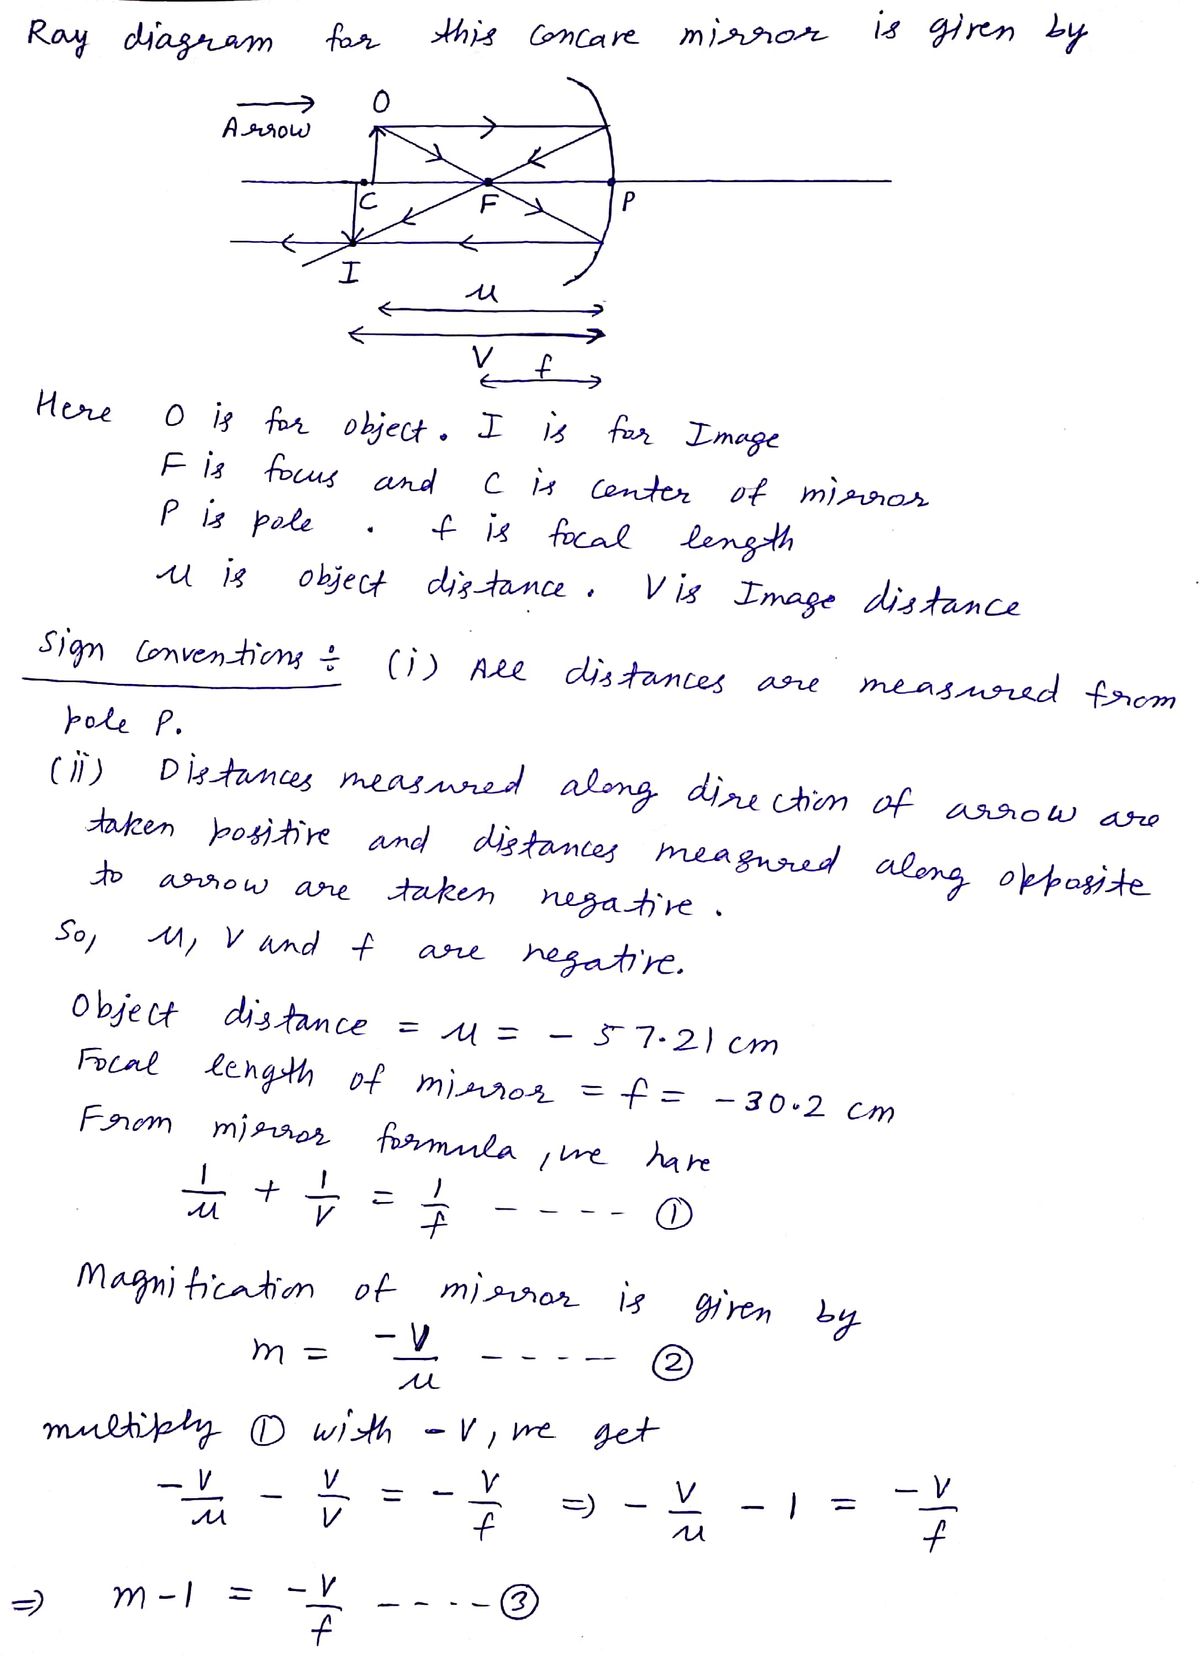 Ray diagram for this concave mirror is given by
Arrow
O
C
F
P
I
u
V
f
Here O is for object. I is for Image
F is focus and C is center of mirror
P is pole . f is focal length
u is object distance. V is Image distance
Sign conventions ÷ (i) All distances are measured from
pole P.
(ii) Distances measured along direction of arrow are
taken positive and distances measured along opposite
to arrow are taken negative.
So, u, V and f are negative.
Object distance = u = - 57.21 cm
Focal length of mirror = f = -30.2 cm
From mirror formula, we have
1/u + 1/V = 1/f ----- ①
Magnification of mirror is given by
m = -V/u ----- ②
multiply ① with -V, we get
-V/u - V/V = -V/f => -V/u - 1 = -V/f
=> m-1 = -V/f ----- ③